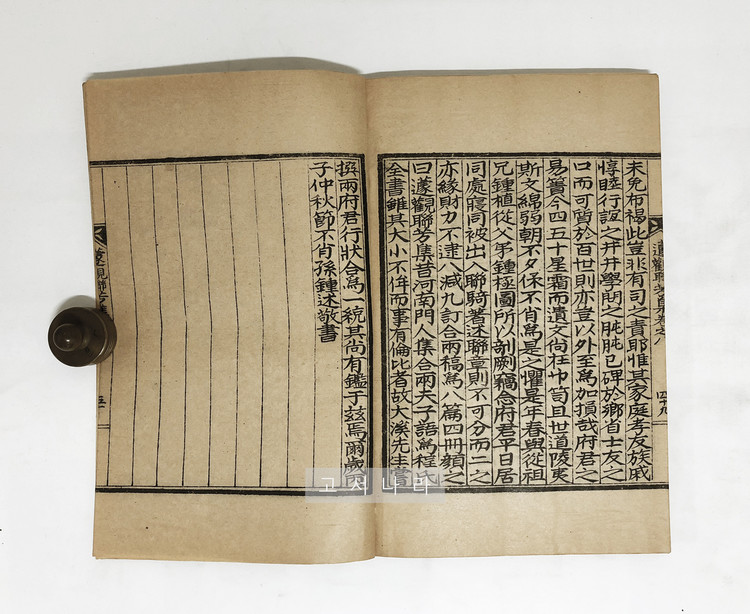 遠觀聯芳集卷之八
四十九
未免布褐此豈非有司之責耶惟其家庭孝友族戚
惇睦行誼之井井學問之肫肫已碑於鄉省士友之
口而可質於百世則亦豈以外至爲加損哉府君之
易簀今四五十星霜而遺文尚在巾笥且世道陵夷
斯文綿弱朝不夕保不肖爲是之懼是年春與從祖
兄鍾植從父弟鍾極圖所以剞劂竊念府君平日居
同處寢同被出入聯騎著述聯章則不可分而二之
亦緣財力不逮八減九訂合兩稿爲八篇四冊顏之
曰遠觀聯芳集昔河南門人集合兩夫子語爲程氏
全書雖其大小不侔而事有倫比者故大溪先生嘗
撰兩府君行狀合爲一統其尚有鑑于玆焉爾歲丙
子仲秋節不肖孫鍾述敬書
고서나라